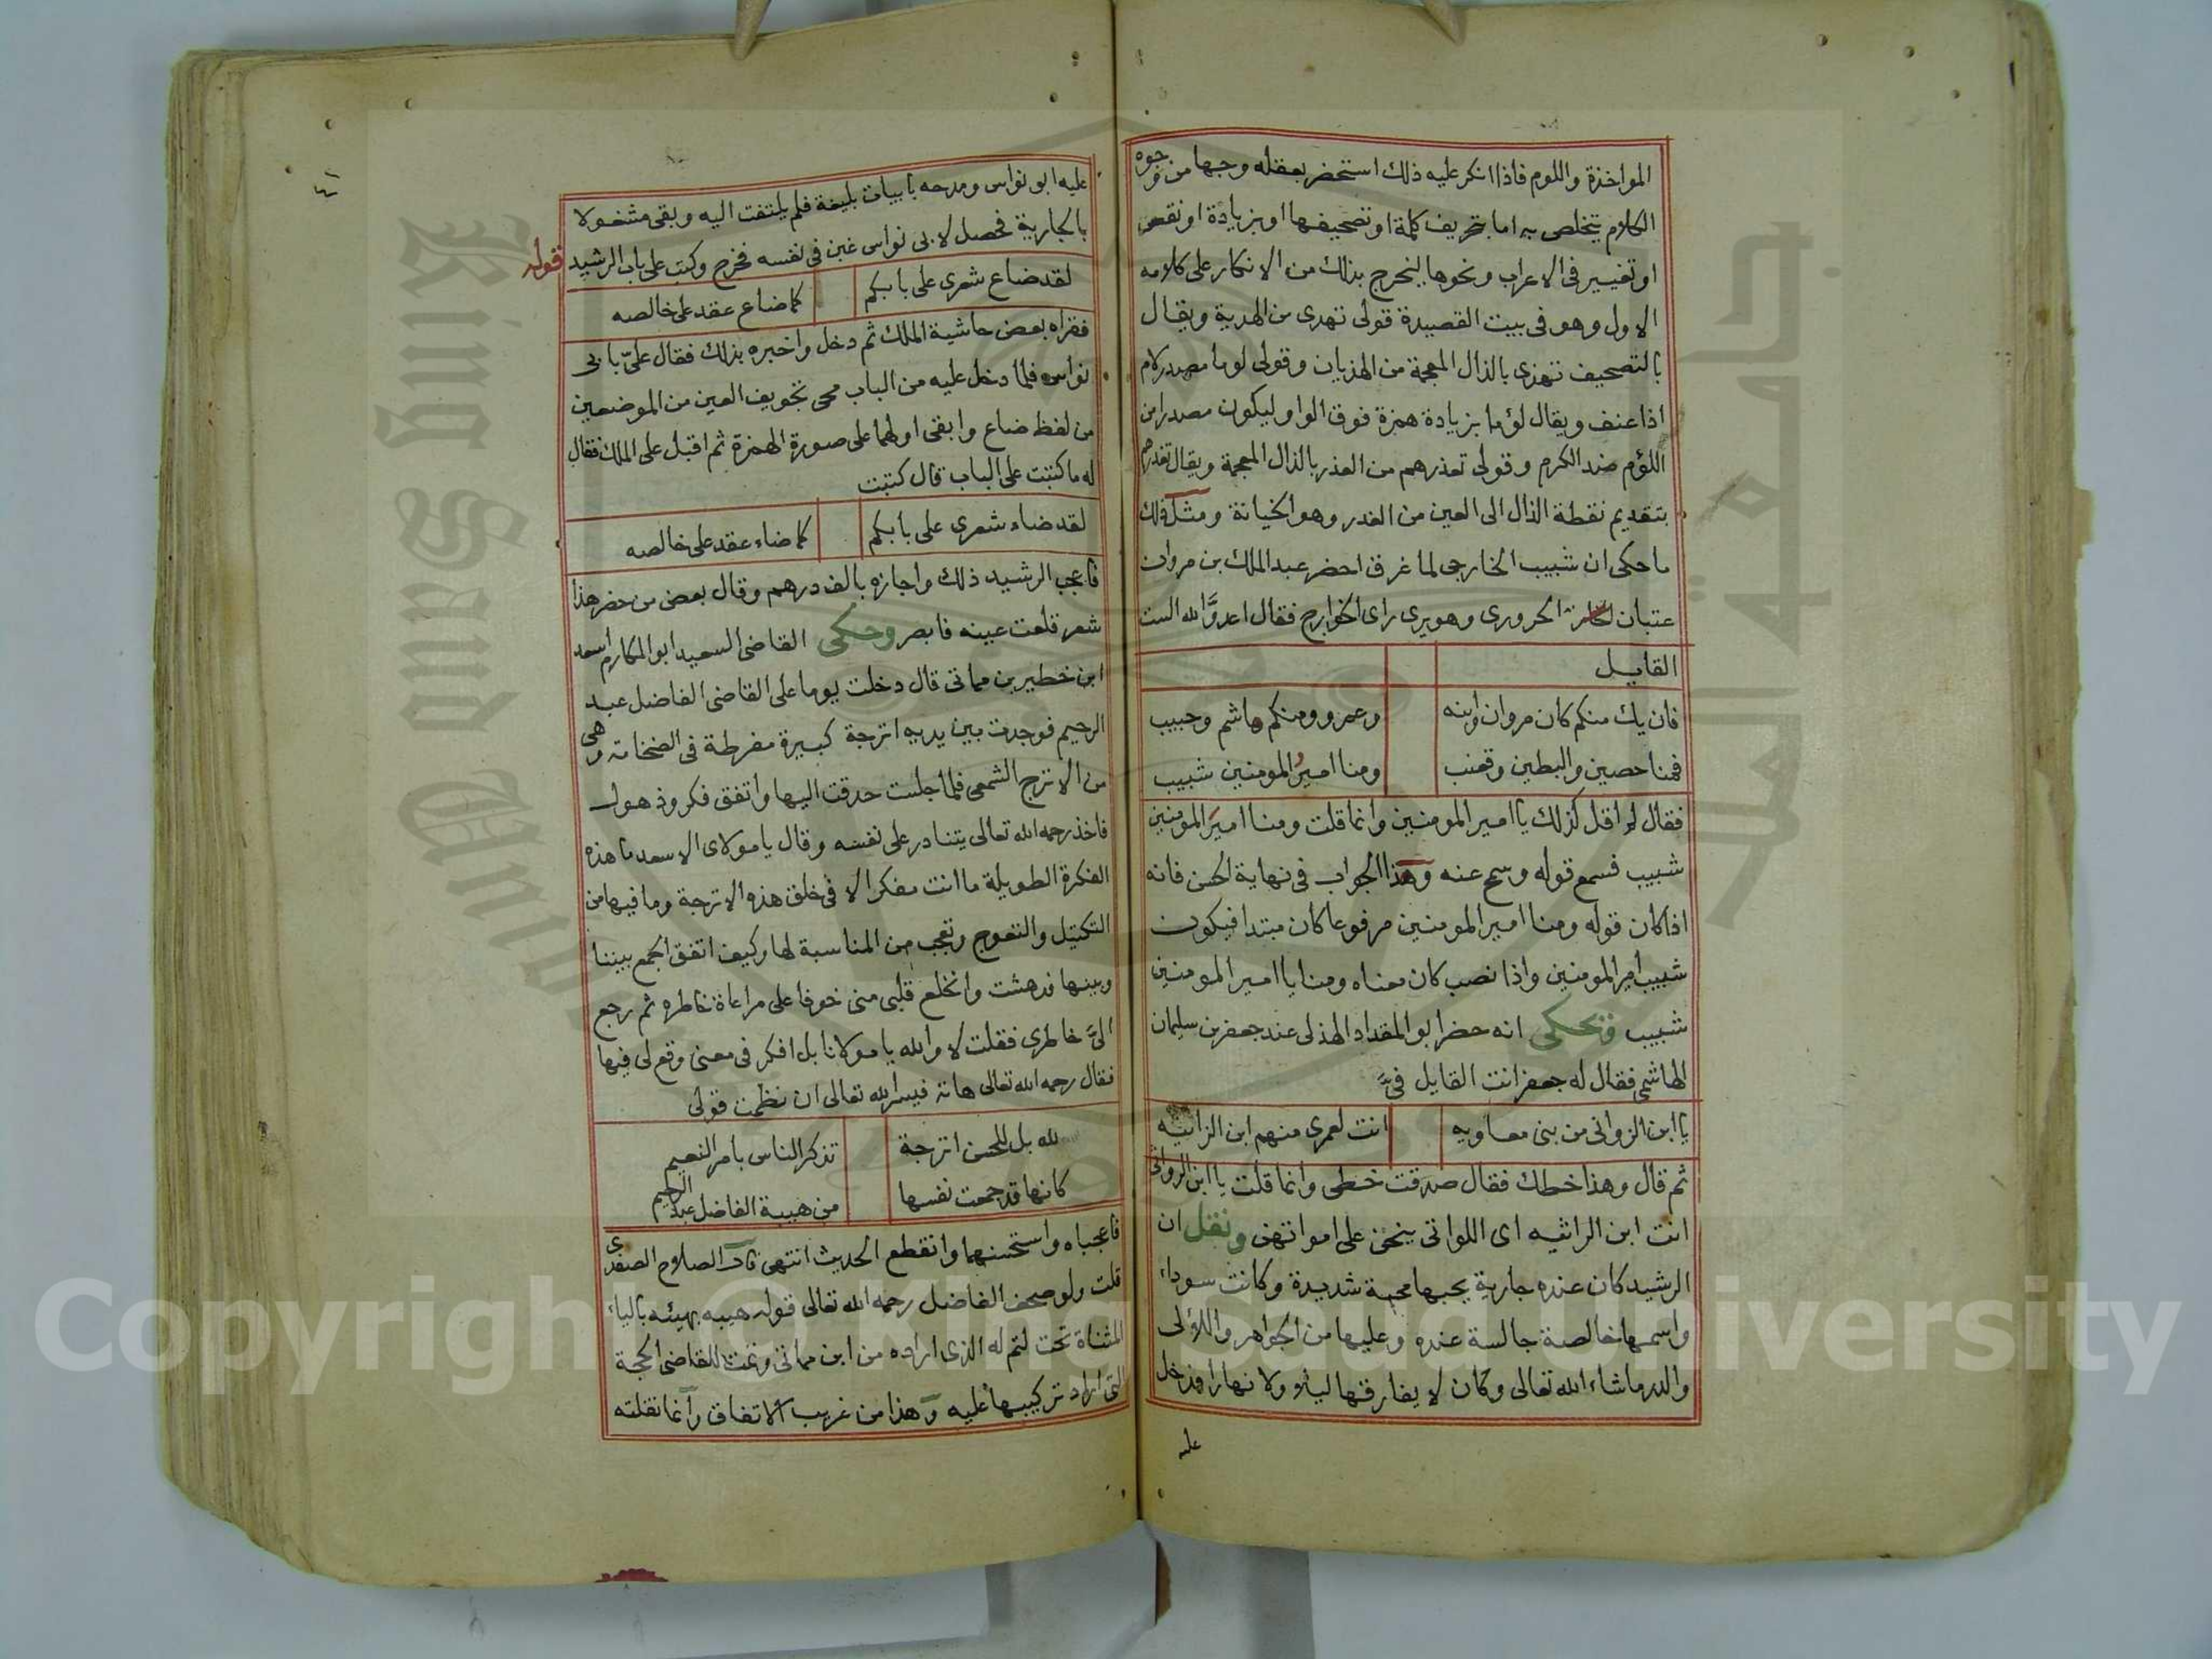 المواخذة واللوم فاذا انكر عليه ذلك استحضر بعقله وجها من وجوه
الكلام يتخلص به اما بتحريف كلمة او تصحيفها او بزيادة او نقص
او تغيير فى الاعراب ونحوها ليخرج بذلك من الانكار على كلامه
الاول وهو فى بيت القصيدة قولى تهدى من الهدية ويقال
بالتصحيف تهذى بالذال المعجمة من الهذيان وقولى لوما مصدر لام
اذا عنف ويقال لؤما بزيادة همزة فوق الواو ليكون مصدرا من
اللؤم ضد الكرم وقولى تعذرهم من العذر بالذال المعجمة ويقال تغدرهم
بتقديم نقطة الذال الى العين من الغدر وهو الخيانة ومثل ذلك
ما حكى ان شبيب الخارجى لما غرق احضر عبد الملك بن مروان
عتبان الحرورى وهو يرى راى الخوارج فقال اعدوَّ الله الست
القايل
فان يك منكم كان مروان وابنه وعمرو ومنكم هاشم وحبيب
فمنا حصين والبطين وقعنب ومنا اميرُ المومنين شبيب
فقال لم اقل كذلك يا امير المومنين وانما قلت ومنا اميرَ المومنين
شبيب فسمع قوله وسمح عنه وهذا الجواب فى نهاية الحسن فانه
اذا كان قوله ومنا امير المومنين مرفوعا كان مبتدا فيكون
شبيب امير المومنين واذا نصب كان معناه ومنا يا امير المومنين
شبيب ويحكى انه حضر ابو المقداد الهذلى عند جعفر بن سليمان
الهاشمى فقال له جعفر انت القايل فىَّ
يا ابن الزوانى من بنى معاويه انت لعمرى منهم ابن الزانيه
ثم قال وهذا خطك فقال صدقت خطى وانما قلت يا ابن الروانى
انت ابن الراثيه اى اللواتى ينحن على امواتهن ونقل ان
الرشيد كان عنده جارية يحبها محبة شديدة وكانت سوداء
واسمها خالصة جالسة عنده وعليها من الجواهر واللؤلى
والدر ما شاء الله تعالى وكان لا يفارقها ليلا ولا نهارا فدخل
عليه
٤١
عليه ابو نواس ومدحه بابيات بليغة فلم يلتفت اليه وبقى مشغولا
بالجارية فحصل لابى نواس غبن فى نفسه فخرج وكتب على باب الرشيد قوله
لقد ضاع شعرى على بابكم كما ضاع عقد على خالصه
فقراه بعض حاشية الملك ثم دخل واخبره بذلك فقال علىّ بابى
نواس فلما دخل عليه من الباب محى تجويف العين من الموضعين
من لفظ ضاع وابقى اولهما على صورة الهمزة ثم اقبل على الملك فقال
له ما كتبت على الباب قال كتبت
لقد ضاء شعرى على بابكم كما ضاء عقد على خالصه
فاعجب الرشيد ذلك واجازه بالف درهم وقال بعض من حضر هذا
شعر قلعت عينه فابصر وحكى القاضى السعيد ابو المكارم اسعد
ابن خطير بن مماتى قال دخلت يوما على القاضى الفاضل عبد
الرحيم فوجدت بين يديه اترجة كبيرة مفرطة فى الضخامة وهى
من الاترج الشمعى فلما جلست حدقت اليها واتفق فكر وذهول
فاخذ رحمه الله تعالى يتنادر على نفسه وقال يا مولاى الاسعد ما هذه
الفكرة الطويلة ما انت مفكر الا فى خلق هذه الاترجة وما فيها من
التكتيل والتعويج وتعجب من المناسبة لها وكيف اتفق الجمع بيننا
وبينها فدهشت وانخلع قلبى منى خوفا على مراعاة خاطره ثم رجع
الىَّ خاطرى فقلت لا والله يا مولانا بل افكر فى معنى وقع لى فيها
فقال رحمه الله تعالى هاته فيسر الله تعالى ان نظمت قولى
لله بل للحسن اترجة تذكر الناس بامر النعيم
كانها قد جمعت نفسها من هيبة الفاضل عبد الرحيم
فاعجباه واستحسنهما وانقطع الحديث انتهى قال الصلاح الصفدى
قلت ولو صحف الفاضل رحمه الله تعالى قوله هيبه بهيئه بالياء
المثناة تحت لتم له الذى اراده من ابن مماتى وتمت للقاضى الحجة
التى اراد تركيبها عليه وهذا من غريب الاتفاق وانما نقلته
Copyright © King Saud University